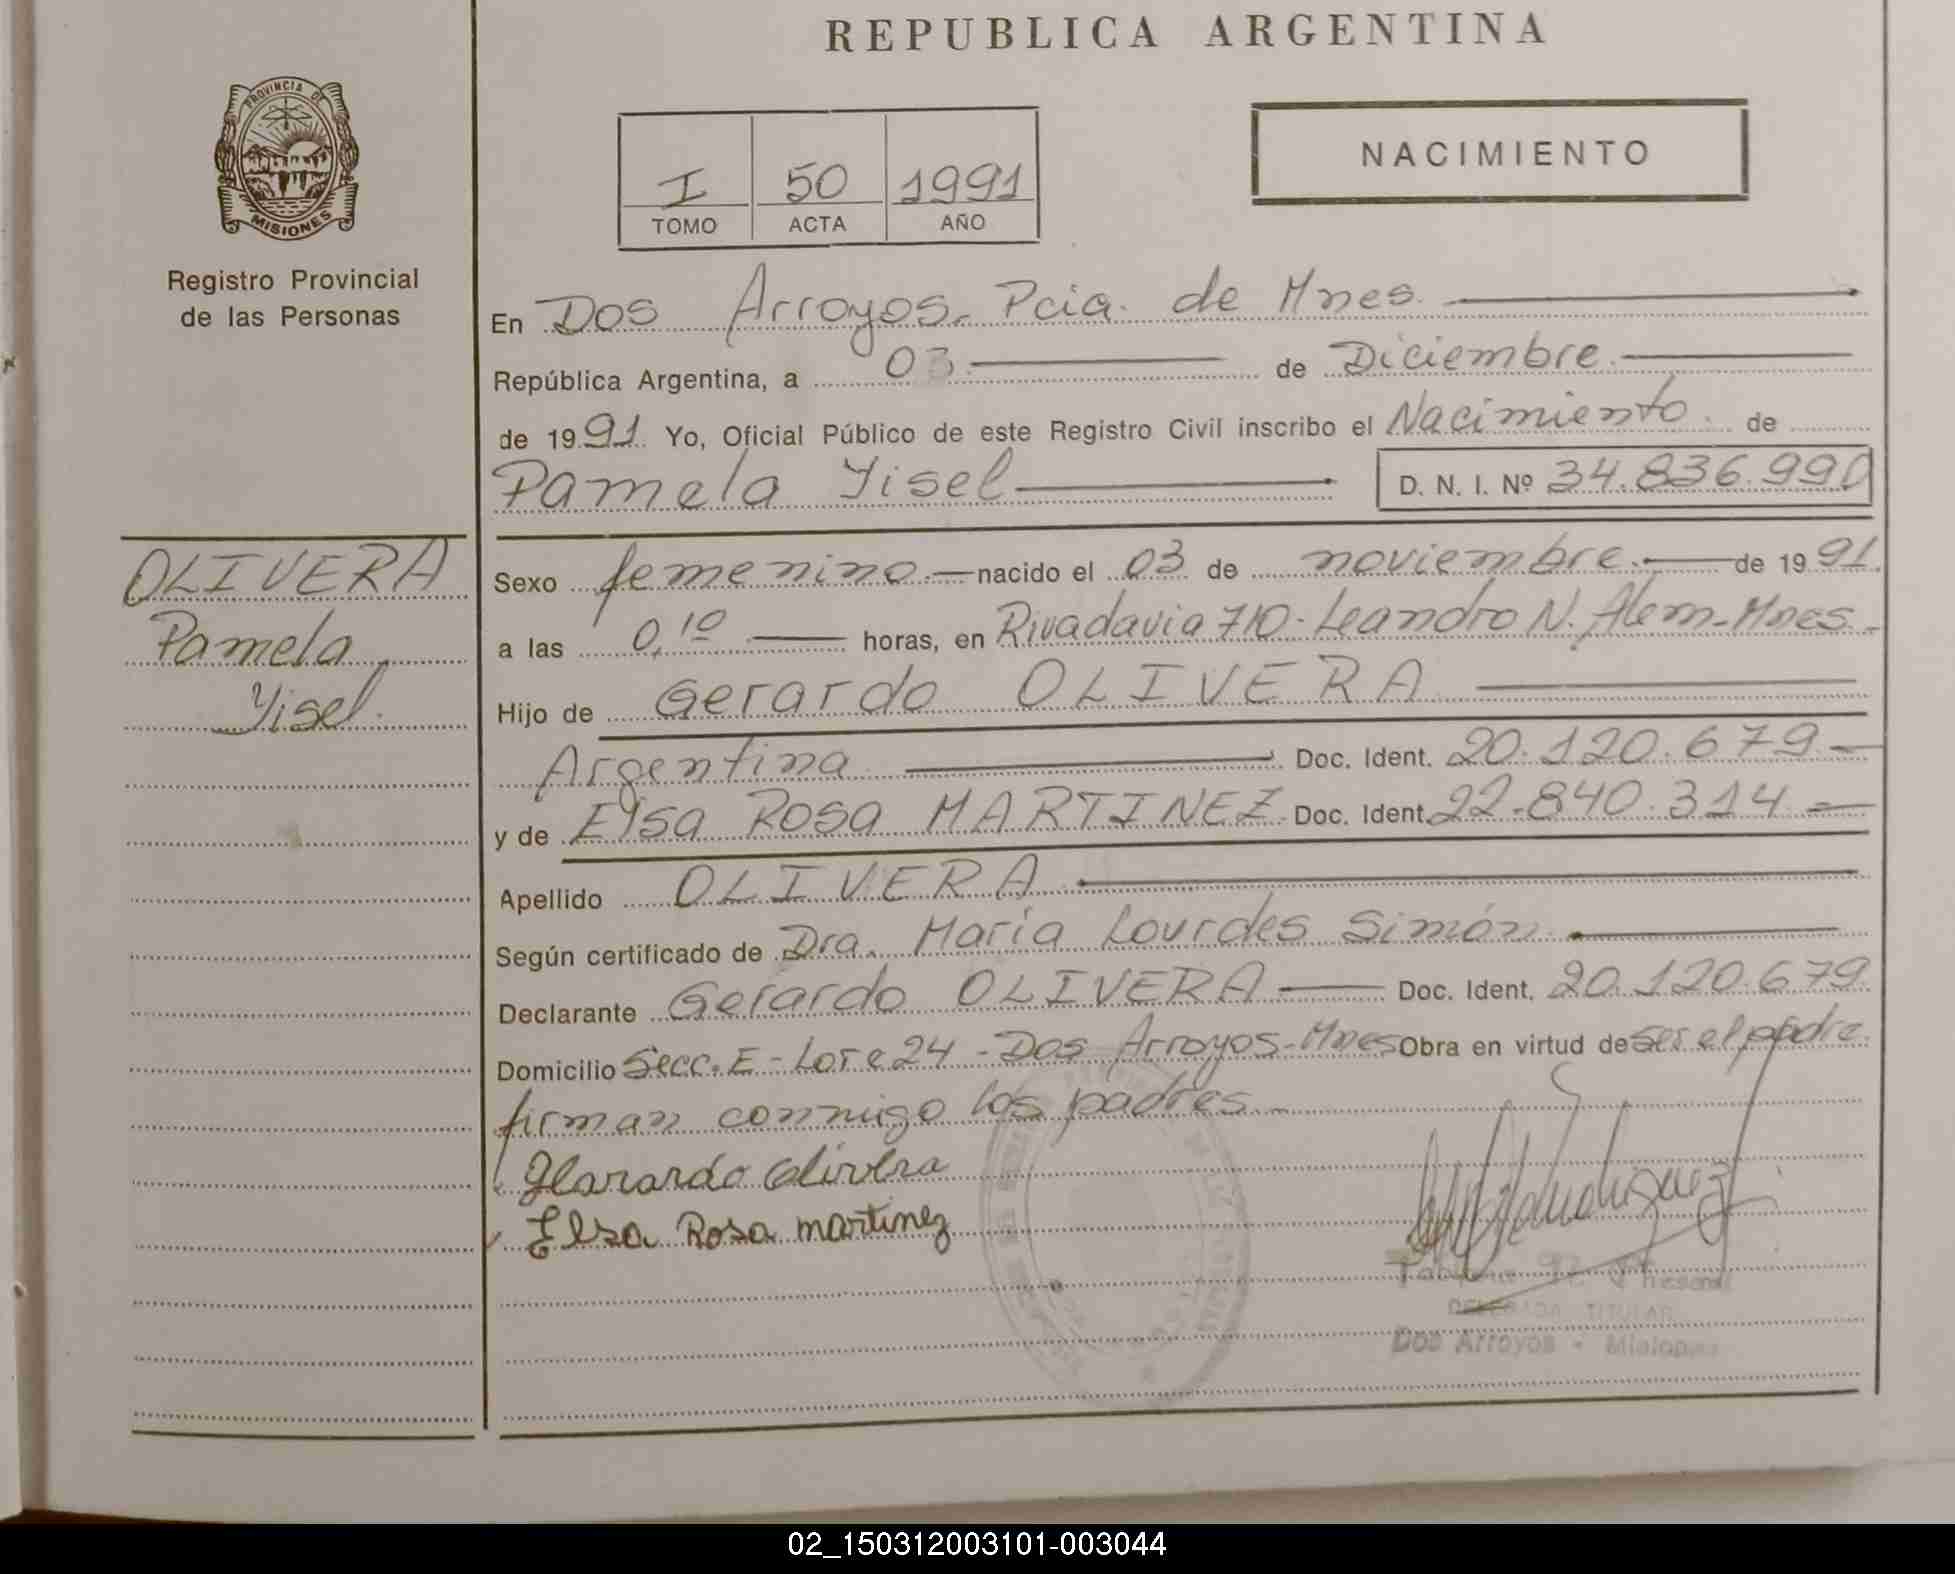 REPUBLICA ARGENTINA
PROVINCIA DE
MISIONES
Registro Provincial
de las Personas
I 50 1991
TOMO ACTA AÑO
NACIMIENTO
En Dos Arroyos. Pcia. de Mnes.
República Argentina, a 03 de Diciembre.
de 1991. Yo, Oficial Público de este Registro Civil inscribo el Nacimiento. de
Pamela Yisel D. N. I. Nº 34.836.990
OLIVERA
Pamela
Yisel.
Sexo femenino.— nacido el 03 de noviembre.— de 1991.
a las 0,10 horas, en Rivadavia 710. Leandro N. Alem-Mnes.-
Hijo de Gerardo OLIVERA
Argentina Doc. Ident. 20.120.679.—
y de Elsa Rosa MARTINEZ. Doc. Ident. 22.840.314.=
Apellido OLIVERA.
Según certificado de Dra. María Lourdes Simón.
Declarante Gerardo OLIVERA Doc. Ident. 20.120.679.
Domicilio Secc. E - Lote 24 - Dos Arroyos-Mnes Obra en virtud de ser el padre.
firman conmigo los padres.-
Gerardo Olivera
Elsa Rosa martinez
TITULAR
Dos Arroyos - Misiones
02_150312003101-003044